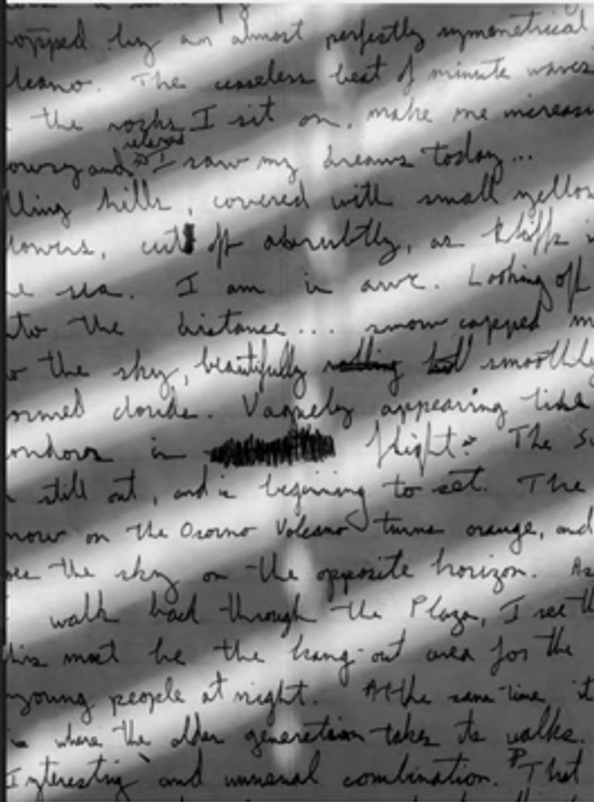 opped by an almost perfectly symmetrical
lcano. The ceaseless beat of minute waves
the rocks I sit on, make me increasi
relaxed
owsy and I saw my dreams today...
lling hills, covered with small yellow
lowers, cut off abruptly, as cliffs i
e sea. I am in awe. Looking off
nto the distance... snow capped m
o the sky, beautifully smoothly
ormed clouds. Vaguely appearing like
ondors in flight. The su
still out, and is beginning to set. The
now on the Osorno Volcano turns orange, and
oes the sky on the opposite horizon. As
I walk back through the Plaza, I see th
his must be the hang-out area for the
young people at night. At the same-time it
is where the older generation takes its walks.
Interesting and unusual combination. That